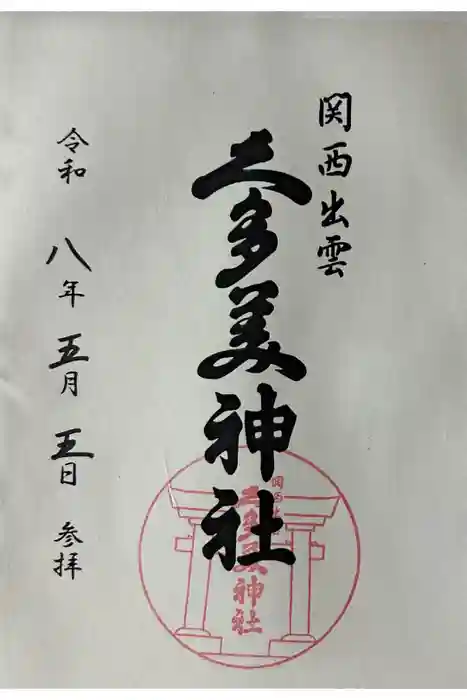 関西出雲
久多美神社
令和 八年 五月 五日 参拝
関西出雲
久多美神社